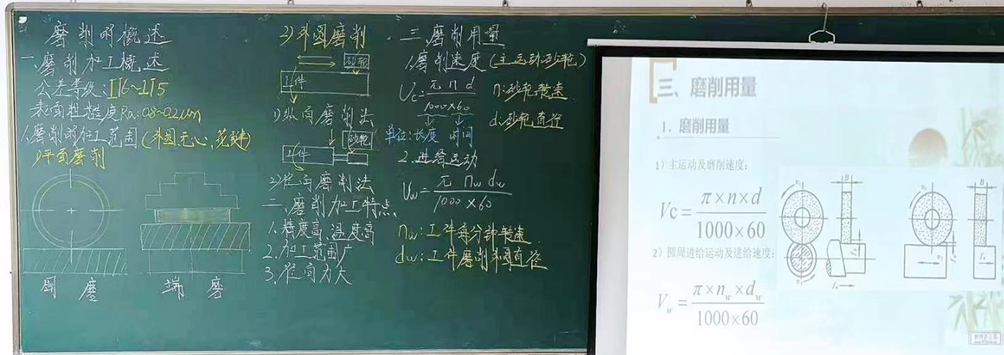 磨削的概述
一、磨削加工概述
公差等级:IT6~IT5
表面粗糙度Ra:0.8~0.2μm
1.磨削的加工范围(外圆,无心,花键)
1)平面磨削
周 磨
端 磨
2)外圆磨削
砂轮
工件
1)纵向磨削法
砂轮
工件
2)径向磨削法
二、磨削加工特点
1.精度高、温度高
2.加工范围广
3.径向力大
三、磨削用量
1.磨削速度(主运动:砂轮)
Vc=π n d/1000×60
n:砂轮转速
d:砂轮直径
单位:长度 时间
2.进给运动
Vw=π nw dw/1000×60
nw:工件每分钟转速
dw:工件磨削外圆直径
三、磨削用量
1. 磨削用量
1)主运动及磨削速度:
Vc=π×n×d/1000×60
2)圆周进给运动及进给速度:
Vw=π×nw×dw/1000×60